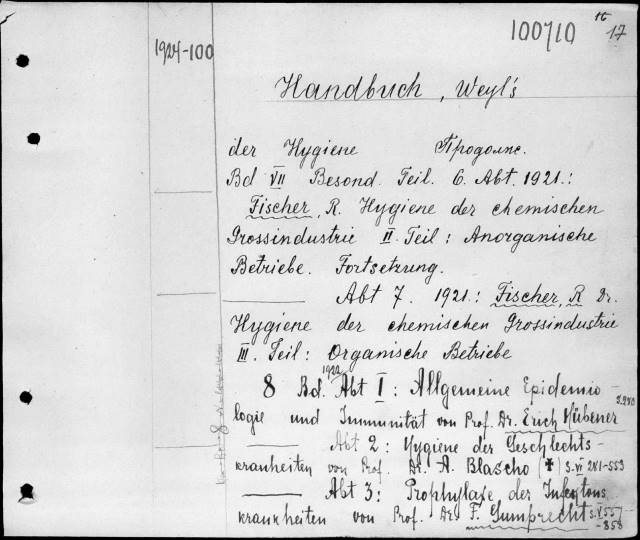 100710 16 17
1924-100
Handbuch, Weyl's
der Hygiene Продолж.
Bd VII Besond. Teil. 6. Abt. 1921.:
Fischer, R. Hygiene der chemischen
Grossindustrie II. Teil: Anorganische
Betriebe. Fortsetzung.
Abt 7. 1921.: Fischer, R Dr.
Hygiene der chemischen Grossindustrie
III. Teil: Organische Betriebe
1922
8 Bd. Abt I: Allgemeine Epidemio-
logie und Immunität von Prof. Dr. Erich Hübener S. 280
Abt 2: Hygiene der Geschlechts-
krankheiten von Prof. Dr. A. Blascho (✝) S. VI 281-553
Abt 3: Prophylaxe der Infektions
krankheiten von Prof. Dr. F. Gumprecht S. V 557
-858